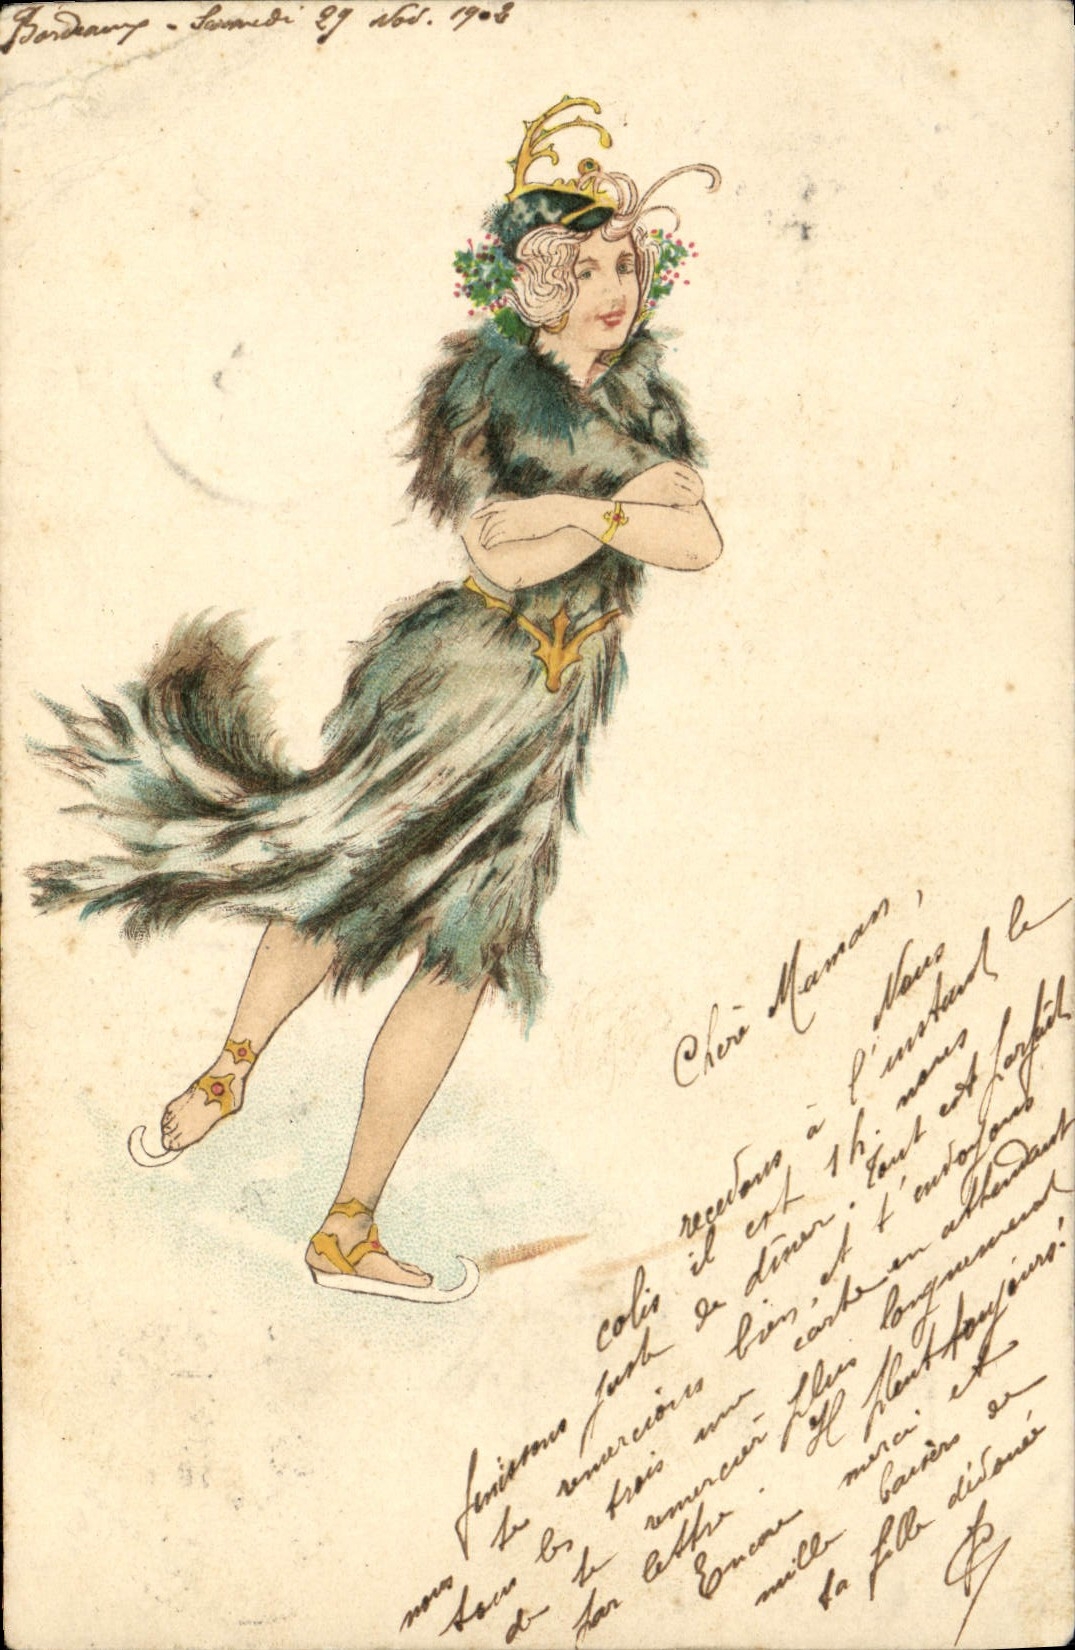 Bordeaux - Samedi 29 Nov. 1902
Chère Maman,
Nous
recevons à l'instant le
colis il est 1h. nous
finissons juste de dîner. Tout est parfait
nous te remercions bien, et t'envoyons
tous les trois une carte en attendant
de te remercier plus longuement
par lettre. Il pleut toujours!
Encore merci et
mille baisers de
ta fille dévouée